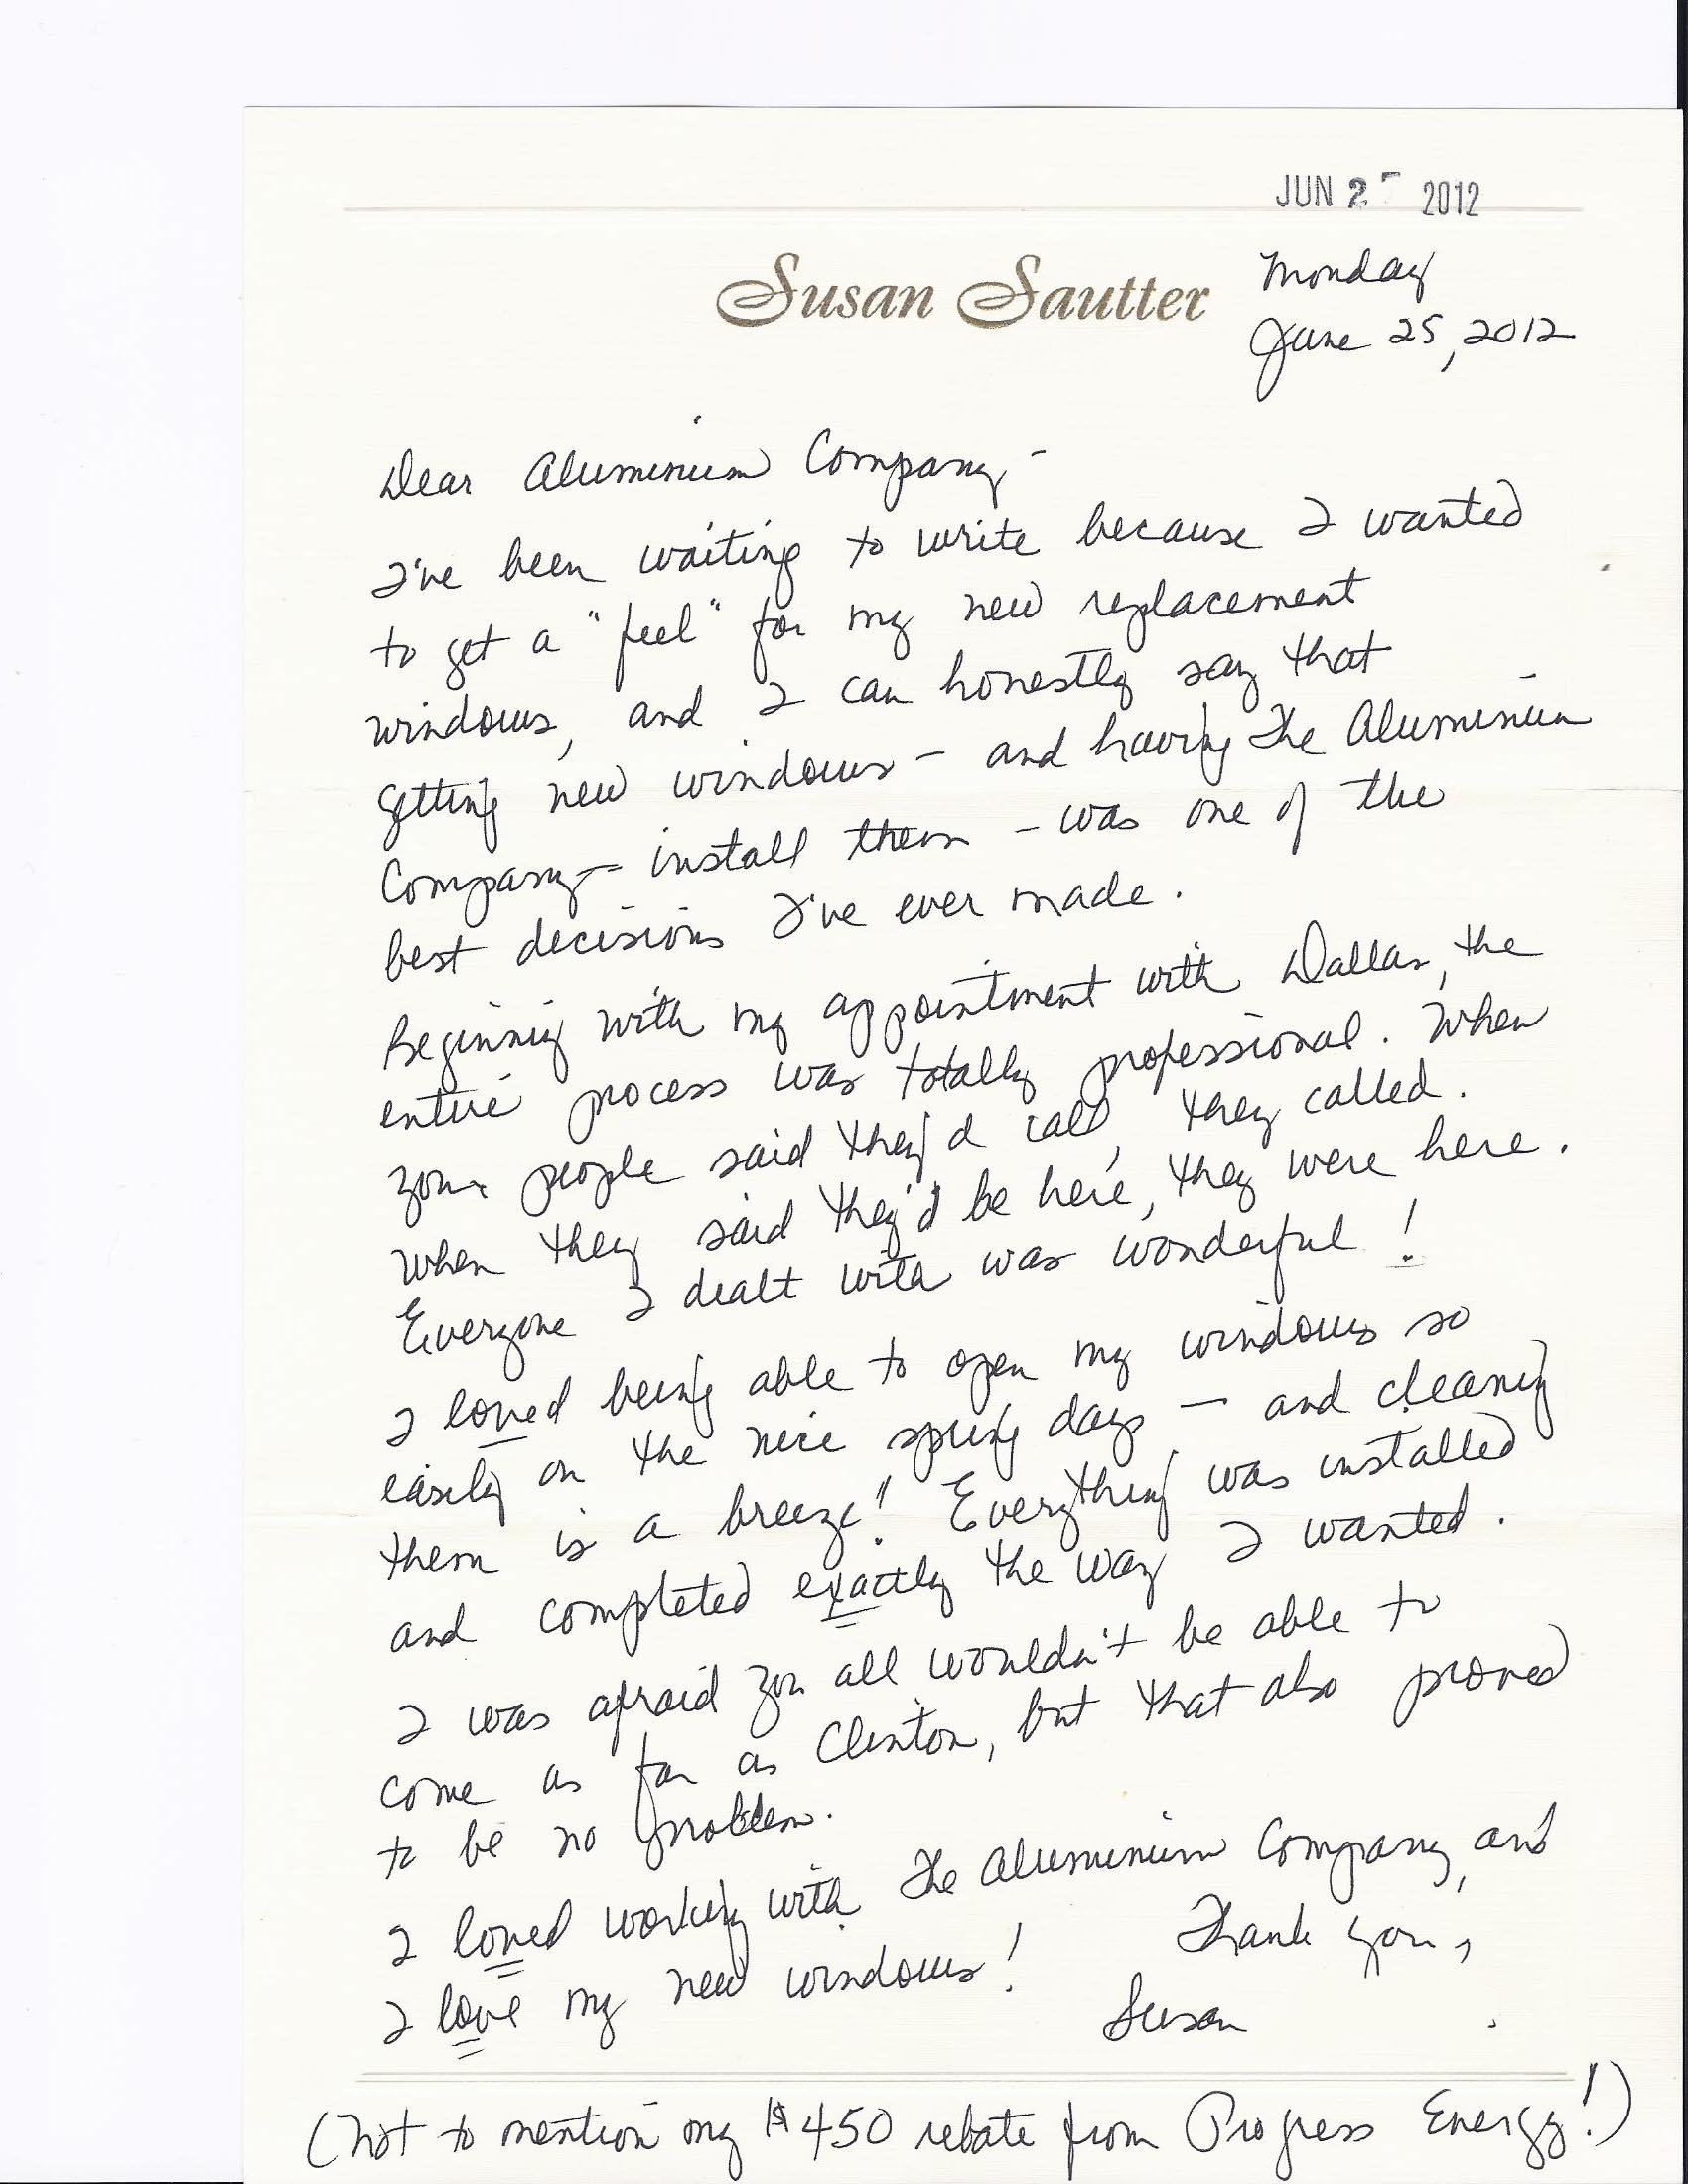 JUN 2 2012
Susan Sautter
Monday
June 25, 2012
Dear Aluminium Company -
I've been waiting to write because I wanted
to get a "feel" for my new replacement
windows, and I can honestly say that
getting new windows - and having The Aluminium
Company - install them - was one of the
best decisions I've ever made.
Beginning with my appointment with Dallas, the
entire process was totally professional. When
your people said they'd call, they called.
When they said they'd be here, they were here.
Everyone I dealt with was wonderful!
I loved being able to open my windows so
easily on the nice spring days - and cleaning
them is a breeze! Everything was installed
and completed exactly the way I wanted.
I was afraid you all wouldn't be able to
come as far as Clinton, but that also proved
to be no problem.
I loved working with The Aluminium Company, and
I love my new windows!
Thank you,
Susan
(Not to mention my $450 rebate from Progress Energy!)